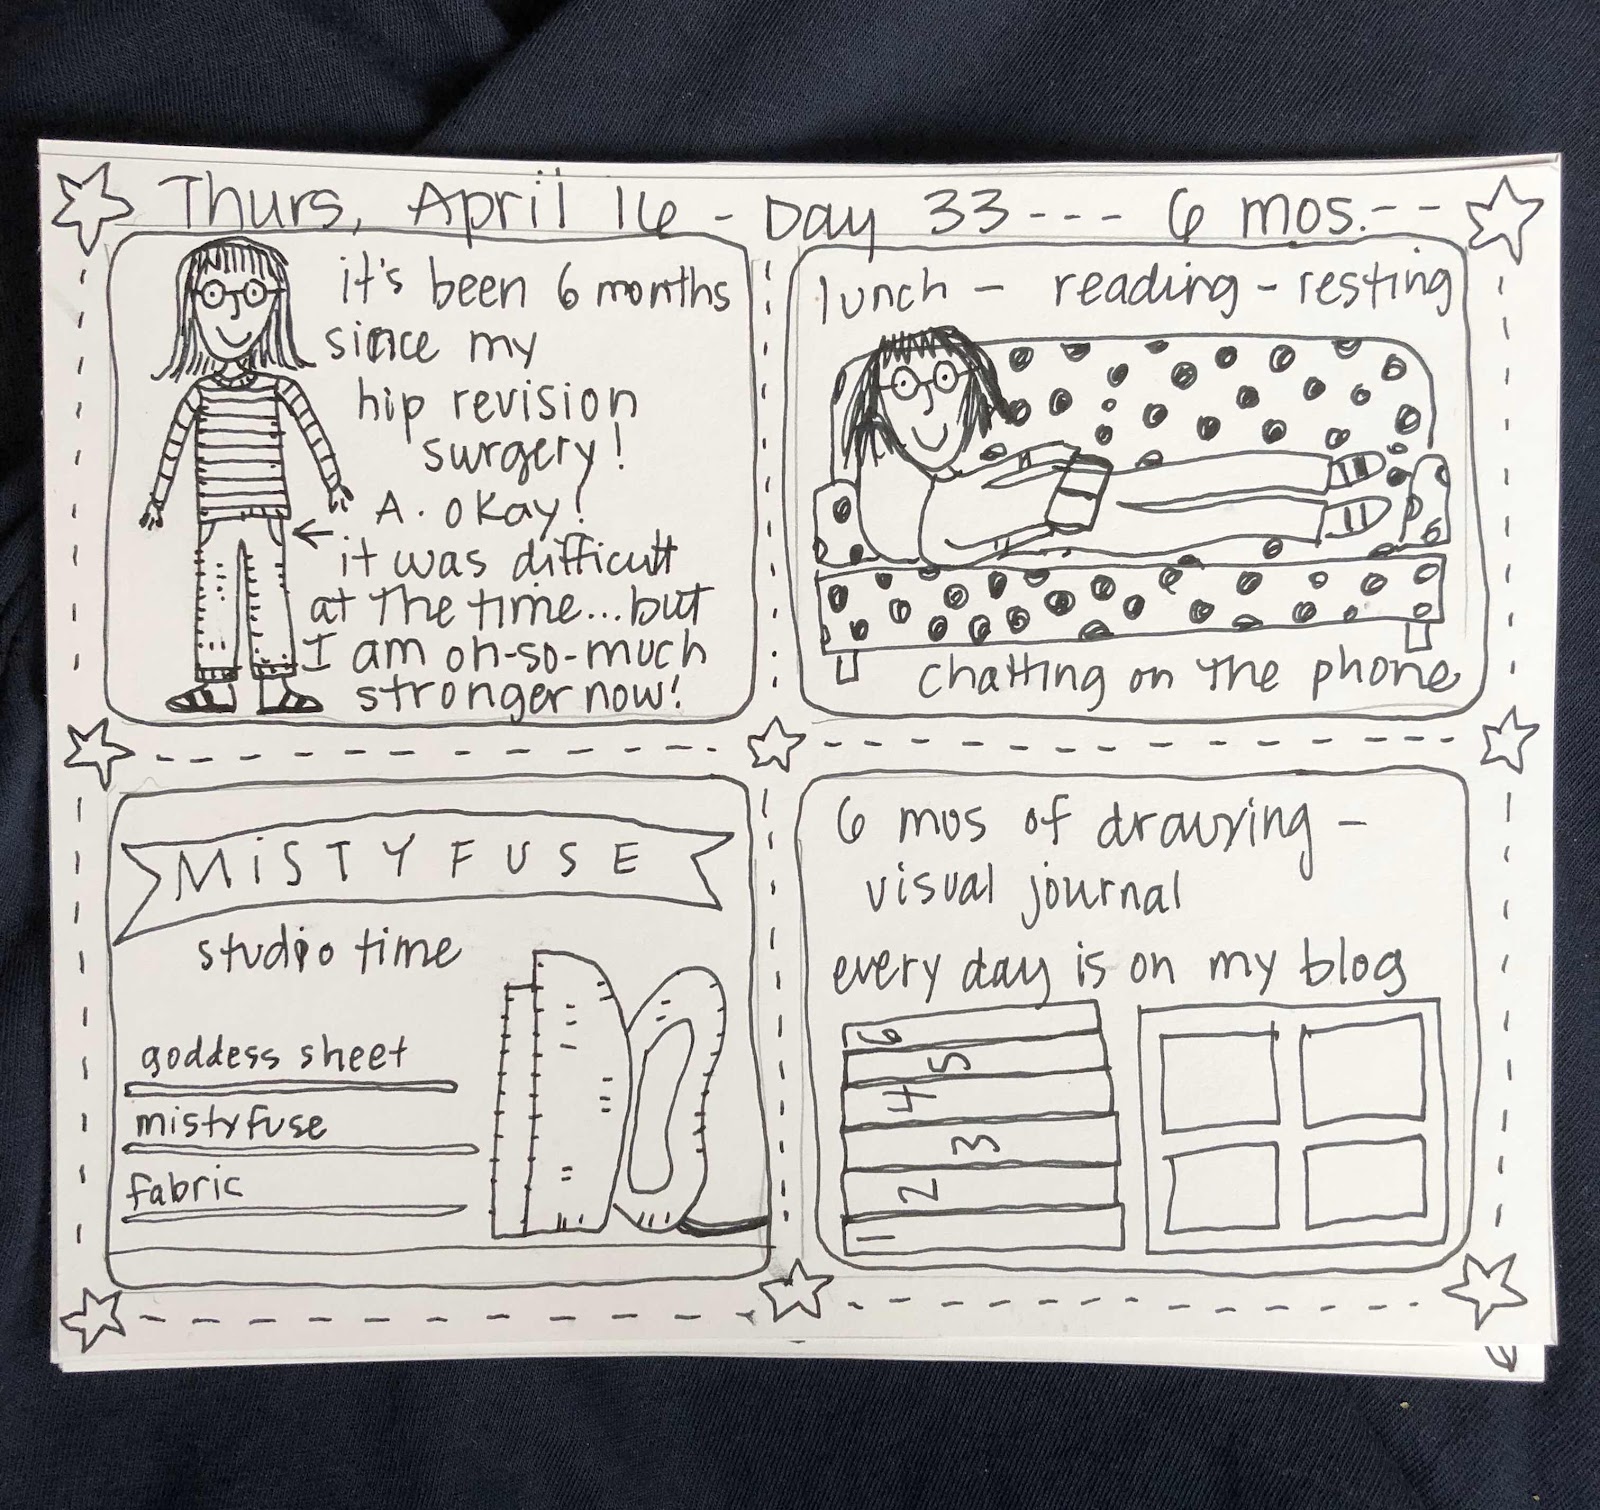 Thurs, April 16 - Day 33 --- 6 mos. --
it's been 6 months
since my
hip revision
surgery!
A. okay!
it was difficult
at the time... but
I am oh-so-much
stronger now!
lunch - reading - resting
chatting on the phone
MiSTYFUSE
studio time
goddess sheet
mistyfuse
fabric
6 mos of drawing -
visual journal
every day is on my blog
6
5
4
3
2
1